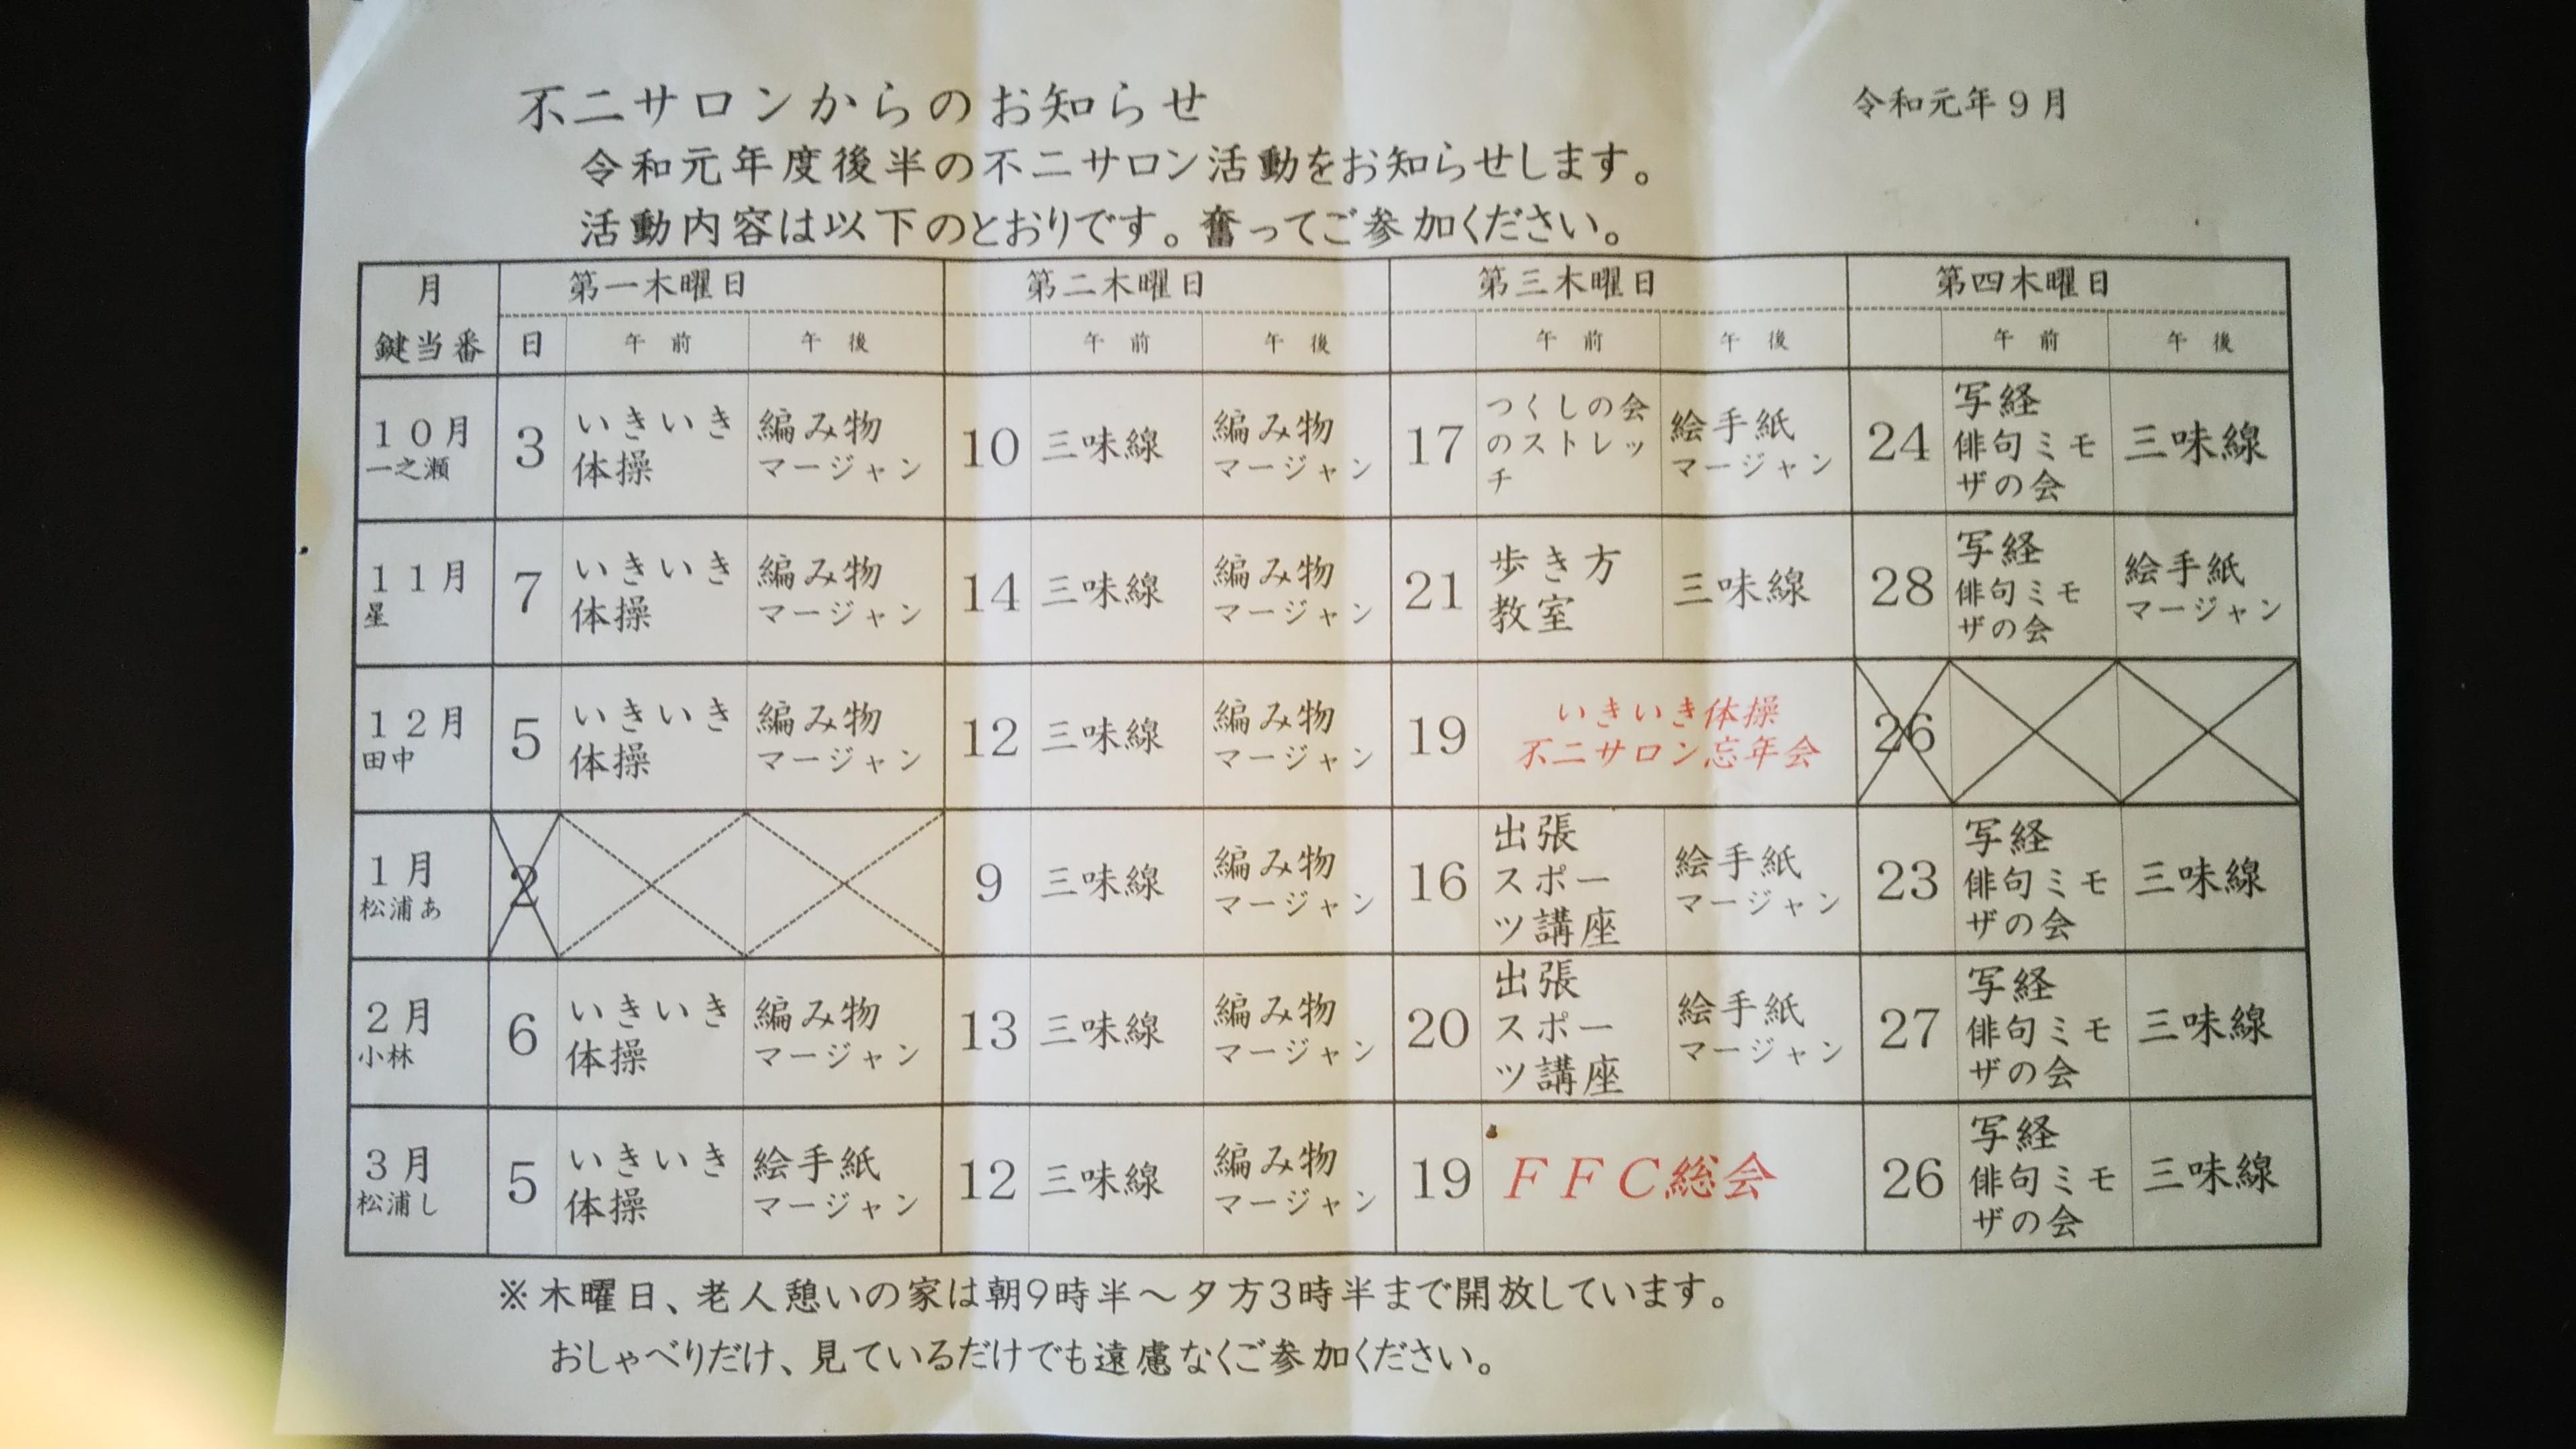 不二サロンからのお知らせ
令和元年9月
令和元年度後半の不二サロン活動をお知らせします。
活動内容は以下のとおりです。奮ってご参加ください。
月 第一木曜日 第二木曜日 第三木曜日 第四木曜日
鍵当番 日 午前 午後 午前 午後 午前 午後 午前 午後
10月
一之瀬
3
いきいき
体操
編み物
マージャン
10
三味線
編み物
マージャン
17
つくしの会
のストレッ
チ
絵手紙
マージャン
24
写経
俳句ミモ
ザの会
三味線
11月
星
7
いきいき
体操
編み物
マージャン
14
三味線
編み物
マージャン
21
歩き方
教室
三味線
28
写経
俳句ミモ
ザの会
絵手紙
マージャン
12月
田中
5
いきいき
体操
編み物
マージャン
12
三味線
編み物
マージャン
19
いきいき体操
不二サロン忘年会
26
1月
松浦あ
2
9
三味線
編み物
マージャン
16
出張
スポー
ツ講座
絵手紙
マージャン
23
写経
俳句ミモ
ザの会
三味線
2月
小林
6
いきいき
体操
編み物
マージャン
13
三味線
編み物
マージャン
20
出張
スポー
ツ講座
絵手紙
マージャン
27
写経
俳句ミモ
ザの会
三味線
3月
松浦し
5
いきいき
体操
絵手紙
マージャン
12
三味線
編み物
マージャン
19
FFC総会
26
写経
俳句ミモ
ザの会
三味線
※木曜日、老人憩いの家は朝9時半～夕方3時半まで開放しています。
おしゃべりだけ、見ているだけでも遠慮なくご参加ください。